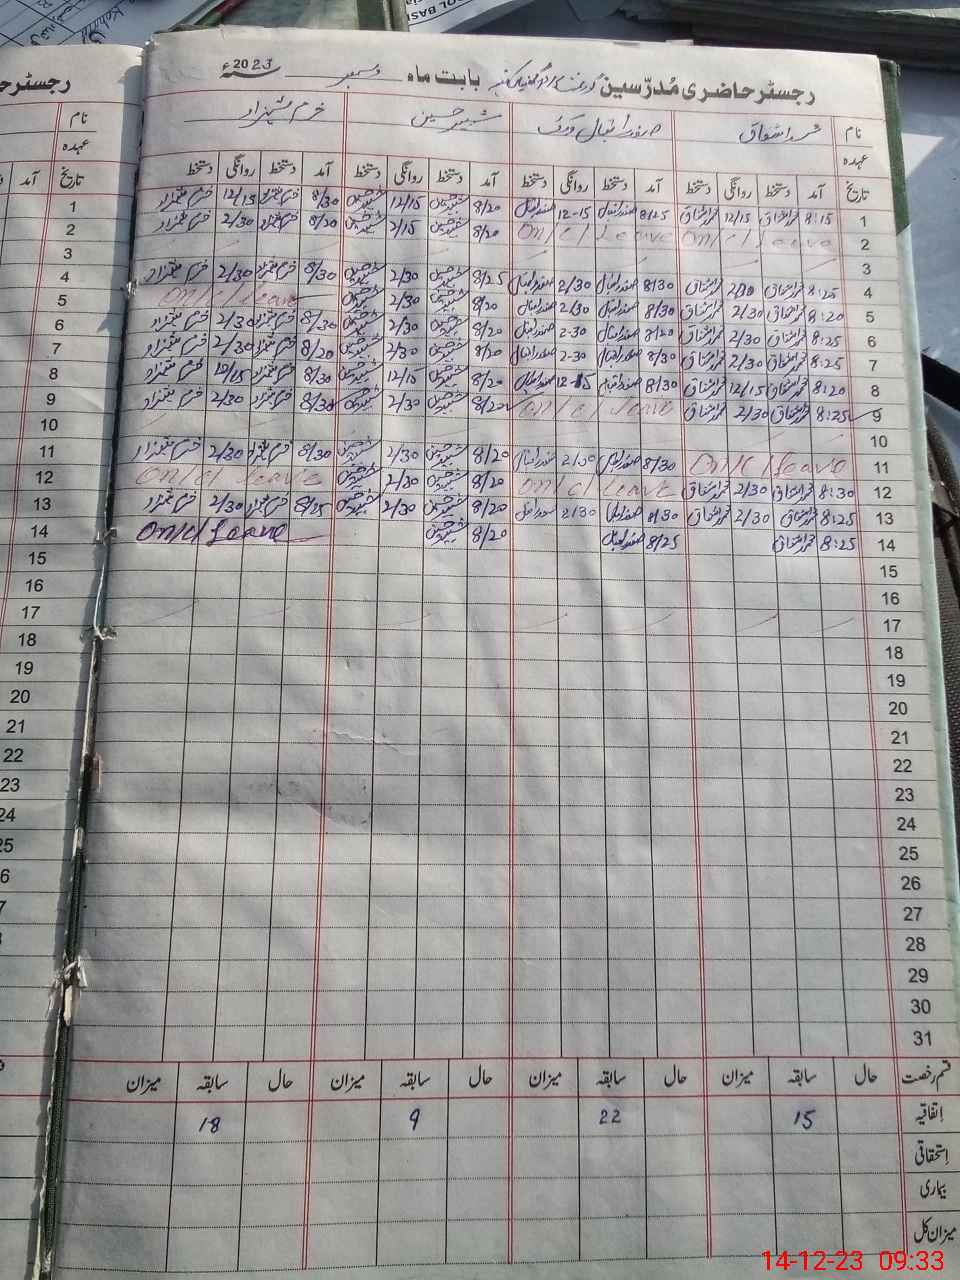 رجسٹر حاضری مُدرّسین بابت ماہ دسمبر 2023ء
نام محمد اشفاق صفدر اقبال شبیر حسین خرم شہزاد نام
عہدہ عہدہ
تاریخ آمد دستخط روانگی دستخط آمد دستخط روانگی دستخط آمد دستخط روانگی دستخط آمد دستخط روانگی دستخط تاریخ آمد
1 8:15 محمد اشفاق 12/15 محمد اشفاق 8/25 صفدر اقبال 12-15 صفدر اقبال 8/20 شبیر حسین 12/15 شبیر حسین 8/30 خرم شہزاد 12/15 خرم شہزاد 1
2 On/c/Leave On/c/Leave 8/20 شبیر حسین 2/15 شبیر حسین 8/30 خرم شہزاد 2/30 خرم شہزاد 2
3 3
4 8:25 محمد اشفاق محمد اشفاق 8/30 صفدر اقبال 2/30 صفدر اقبال 8/25 شبیر حسین 2/30 شبیر حسین 8/30 خرم شہزاد 2/30 خرم شہزاد 4
5 8:20 محمد اشفاق 2/30 محمد اشفاق 8/30 صفدر اقبال 2/30 صفدر اقبال 8/20 شبیر حسین 2/30 شبیر حسین On/c/Leave 5
6 8:25 محمد اشفاق 2/30 محمد اشفاق 8/20 صفدر اقبال 2-30 صفدر اقبال 8/20 شبیر حسین 2/30 شبیر حسین 8/30 خرم شہزاد 2/30 خرم شہزاد 6
7 8:25 محمد اشفاق 2/30 محمد اشفاق 8/30 صفدر اقبال 2-30 صفدر اقبال 8/20 شبیر حسین 2/30 شبیر حسین 8/20 خرم شہزاد 2/30 خرم شہزاد 7
8 8:20 محمد اشفاق 12/15 محمد اشفاق 8/30 صفدر اقبال 12-15 صفدر اقبال 8/20 شبیر حسین 12/15 شبیر حسین 8/30 خرم شہزاد 12/15 خرم شہزاد 8
9 8:25 محمد اشفاق 2/30 محمد اشفاق On/c/Leave 8/20 شبیر حسین 2/30 شبیر حسین 8/30 خرم شہزاد 2/30 خرم شہزاد 9
10 10
11 On/c/Leave 8/30 صفدر اقبال 2/30 صفدر اقبال 8/20 شبیر حسین 2/30 شبیر حسین 8/30 خرم شہزاد 2/30 خرم شہزاد 11
12 8:30 محمد اشفاق 2/30 محمد اشفاق On/c/Leave 8/20 شبیر حسین 2/30 شبیر حسین On/c/Leave 12
13 8:25 محمد اشفاق 2/30 محمد اشفاق 8/30 صفدر اقبال 2/30 صفدر اقبال 8/20 شبیر حسین 2/30 شبیر حسین 8/25 خرم شہزاد 2/30 خرم شہزاد 13
14 8:25 محمد اشفاق 8/25 صفدر اقبال 8/20 شبیر حسین On/c/Leave 14
15 15
16 16
17 17
18 18
19 19
20 20
21 21
22 22
23 23
24 24
25 25
26
27
28
29
30
31
قسم رخصت حال سابقہ میزان حال سابقہ میزان حال سابقہ میزان حال سابقہ میزان
اتفاقیہ 15 22 9 18
استحقاقی
بیماری
میزان کل
14-12-23 09:33